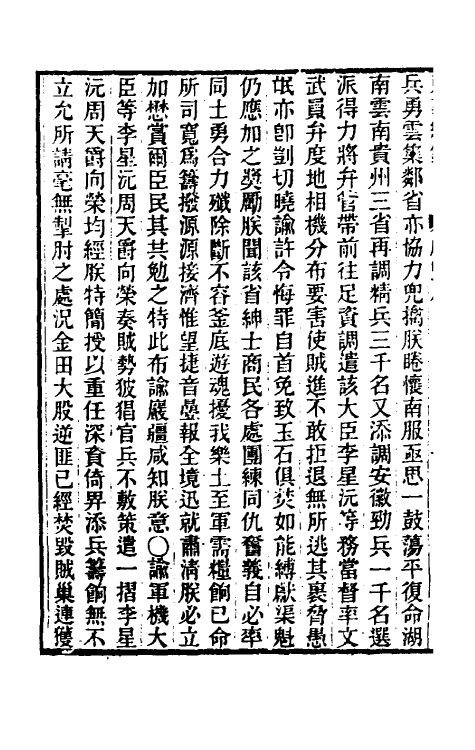 兵勇雲集鄰省亦協力兜擒朕睠懷南服亟思一鼓蕩平復命湖
南雲南貴州三省再調精兵三千名又添調安徽勁兵一千名選
派得力將弁管帶前往足資調遣該大臣李星沅等務當督率文
武員弁度地相機分布要害使賊進不敢拒退無所逃其裹脅愚
氓亦卽剴切曉諭許令悔罪自首免致玉石俱焚如能縛獻渠魁
仍應加之獎勵朕聞該省紳士商民各處團練同仇奮義自必率
同土勇合力殲除斷不容釜底遊魂擾我樂土至軍需糧餉已命
所司寬爲籌撥源源接濟惟望捷音疊報全境迅就肅清朕必立
加懋賞爾臣民其共勉之特此布諭嚴疆咸知朕意○諭軍機大
臣等李星沅周天爵向榮奏賊勢披猖官兵不敷策遣一摺李星
沅周天爵向榮均經朕特簡授以重任深資倚畀添兵籌餉無不
立允所請毫無掣肘之處況金田大股逆匪已經焚毀賊巢連獲